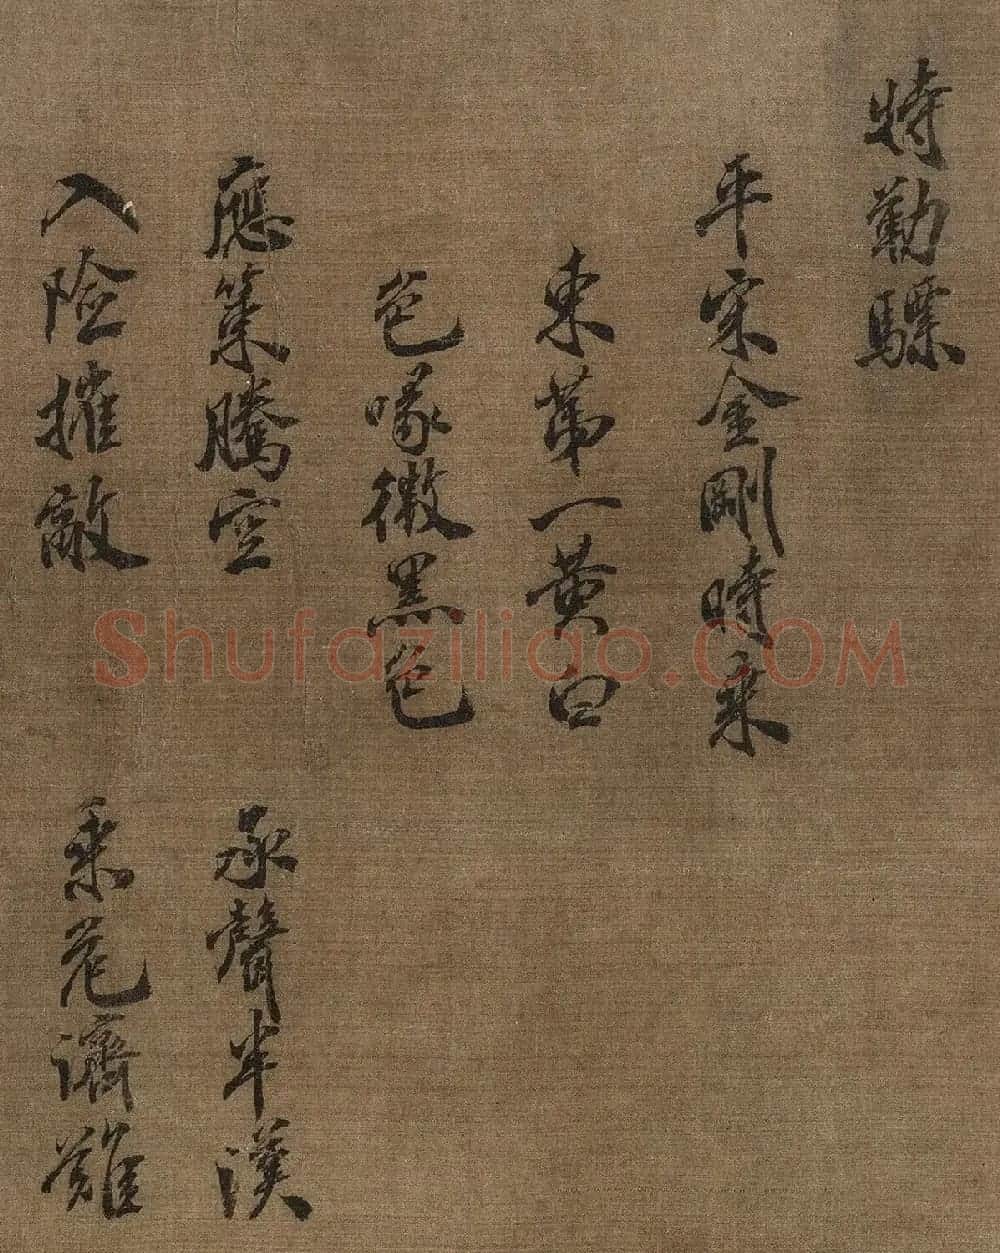 特勒驃
平宋金剛時乘
東第一黃白
色喙微黑色
應策騰空 承聲半漢
入險摧敵 乘危濟難
Shufaziliao.COM